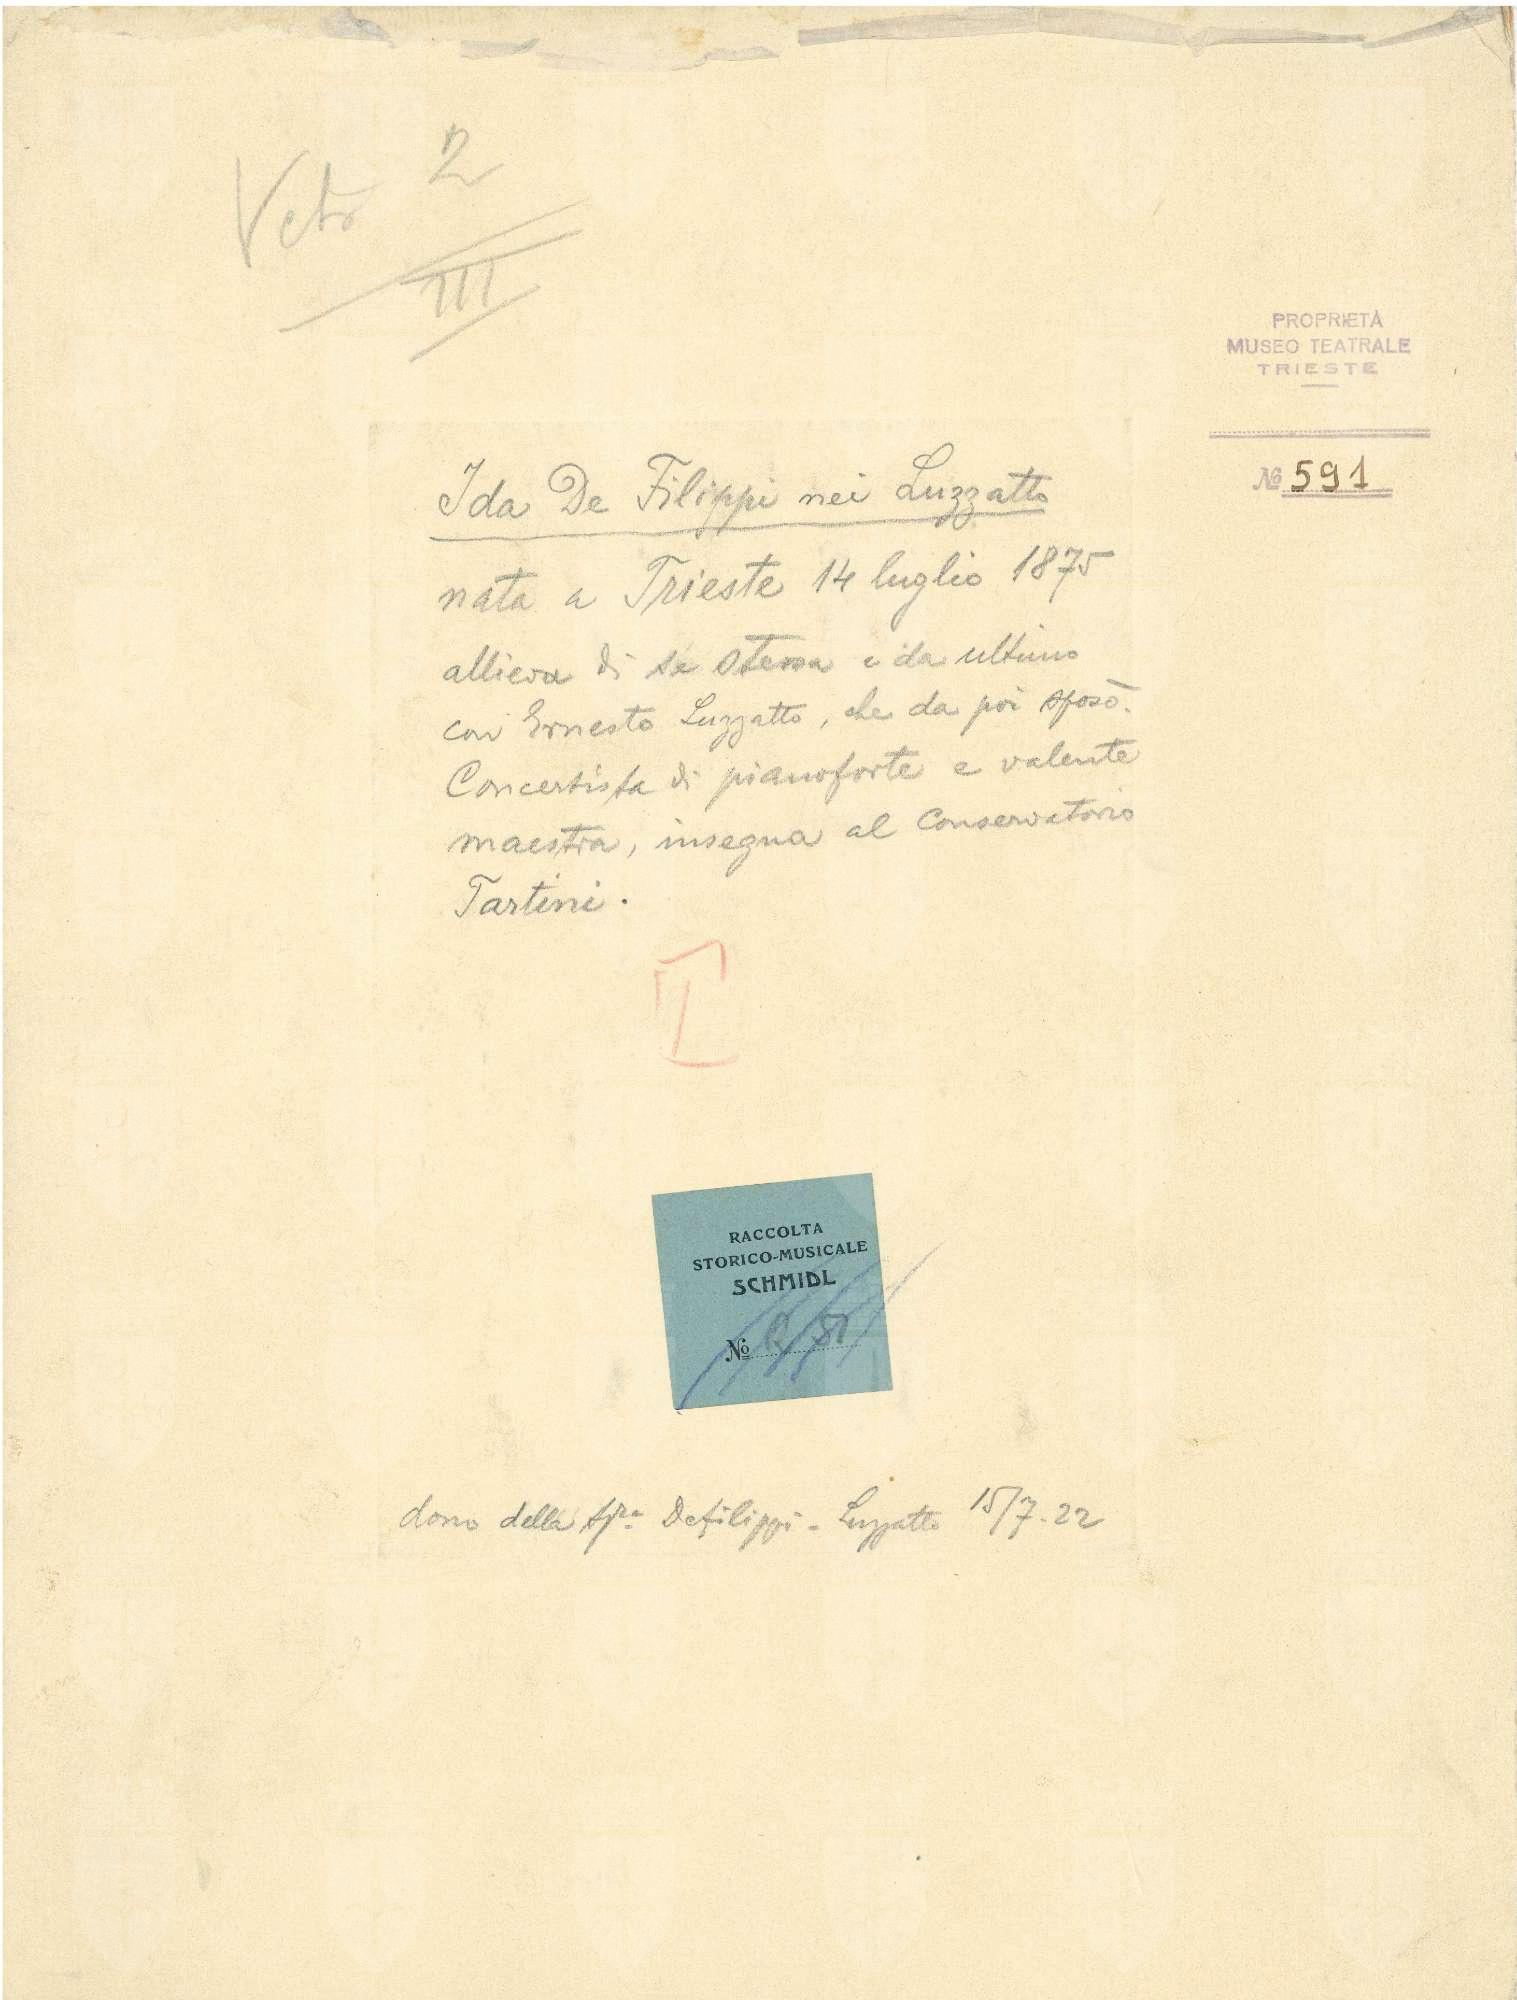 2
III
PROPRIETÀ
MUSEO TEATRALE
TRIESTE
No 591
Ida De Filippi nei Luzzatto
nata a Trieste 14 luglio 1875
allieva di se stessa e da ultimo
con Ernesto Luzzatto, che da poi sposò.
Concertista di pianoforte e valente
maestra, insegna al Conservatorio
Tartini.
I
RACCOLTA
STORICO-MUSICALE
SCHMIDL
No
dono della Sra Defilippi - Luzzatto 15/7.22